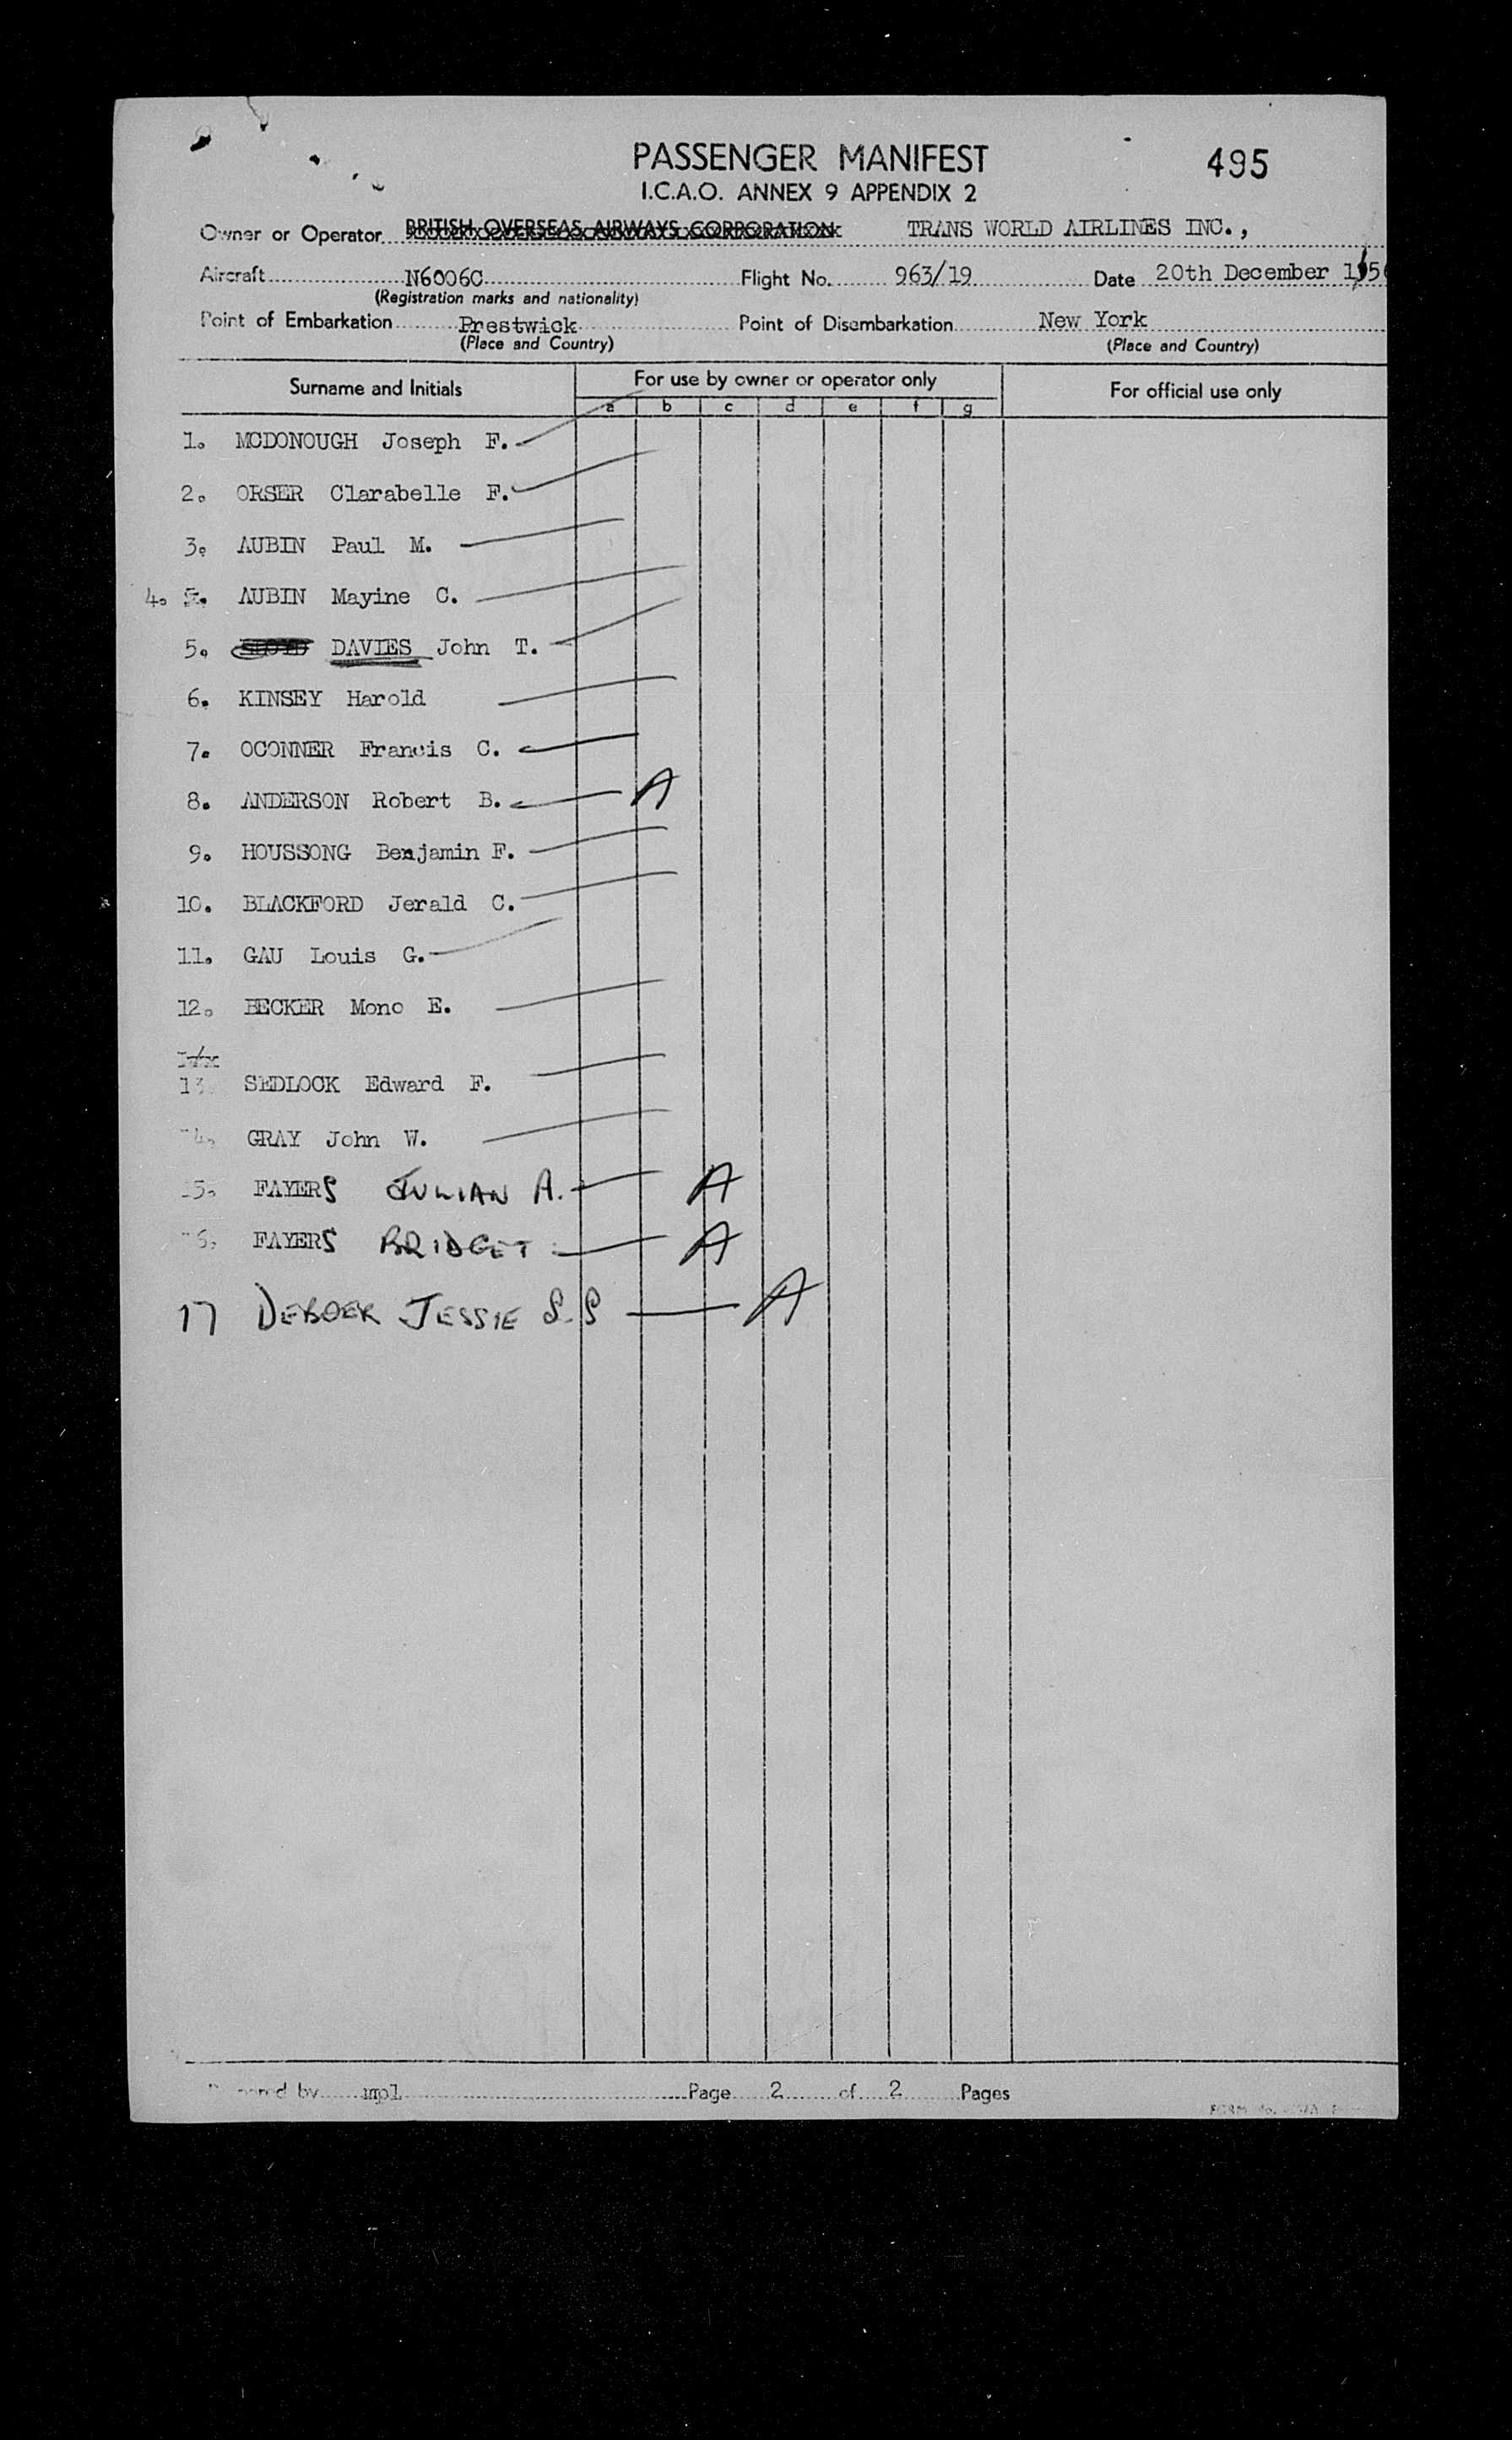 PASSENGER MANIFEST
495
I.C.A.O. ANNEX 9 APPENDIX 2
Owner or Operator BRITISH OVERSEAS AIRWAYS CORPORATION TRANS WORLD AIRLINES INC.,
Aircraft N6006C Flight No. 963/19 Date 20th December 195
(Registration marks and nationality)
Point of Embarkation Prestwick Point of Disembarkation New York
(Place and Country) (Place and Country)
Surname and Initials For use by owner or operator only For official use only
a b c d e f g
1. MCDONOUGH Joseph F.
2. ORSER Clarabelle F.
3. AUBIN Paul M.
4. 5. AUBIN Mayine C.
5. DAVIES John T.
6. KINSEY Harold
7. OCONNER Francis C.
8. ANDERSON Robert B. A
9. HOUSSONG Benjamin F.
10. BLACKFORD Jerald C.
11. GAU Louis G.
12. BECKER Mono E.
13 SEDLOCK Edward F.
14. GRAY John W.
15. FAYERS JULIAN A. A
16. FAYERS BRIDGET A
17 DEBOER JESSIE S.S A
Prepared by mpl Page 2 of 2 Pages